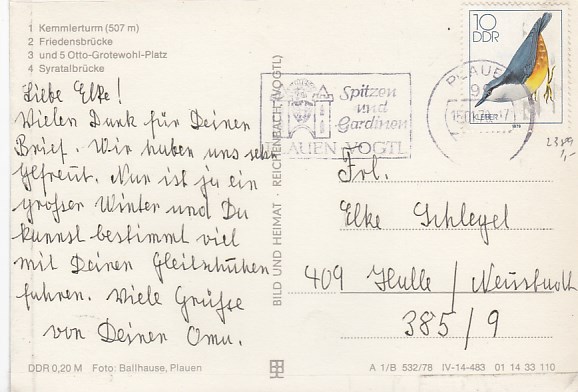 1 Kemmlerturm (507 m)
2 Friedensbrücke
3 und 5 Otto-Grotewohl-Platz
4 Syratalbrücke
Liebe Elke!
Vielen Dank für Deinen
Brief. Wir haben uns sehr
gefreut. Nun ist ja ein
großer Winter und Du
kannst bestimmt viel
mit Deinen Gleitschuhen
fahren. Viele Grüße
von Deiner Oma.
DDR 0,20 M Foto: Ballhause, Plauen
BILD UND HEIMAT · REICHENBACH (VOGTL)
Spitzen
und
Gardinen
PLAUEN VOGTL
PLAUEN
10
DDR
KLEIBER
1979
Frl.
Elke Schlegel
409 Halle / Neustadt
385/9
A 1/B 532/78 IV-14-483 01 14 33 110